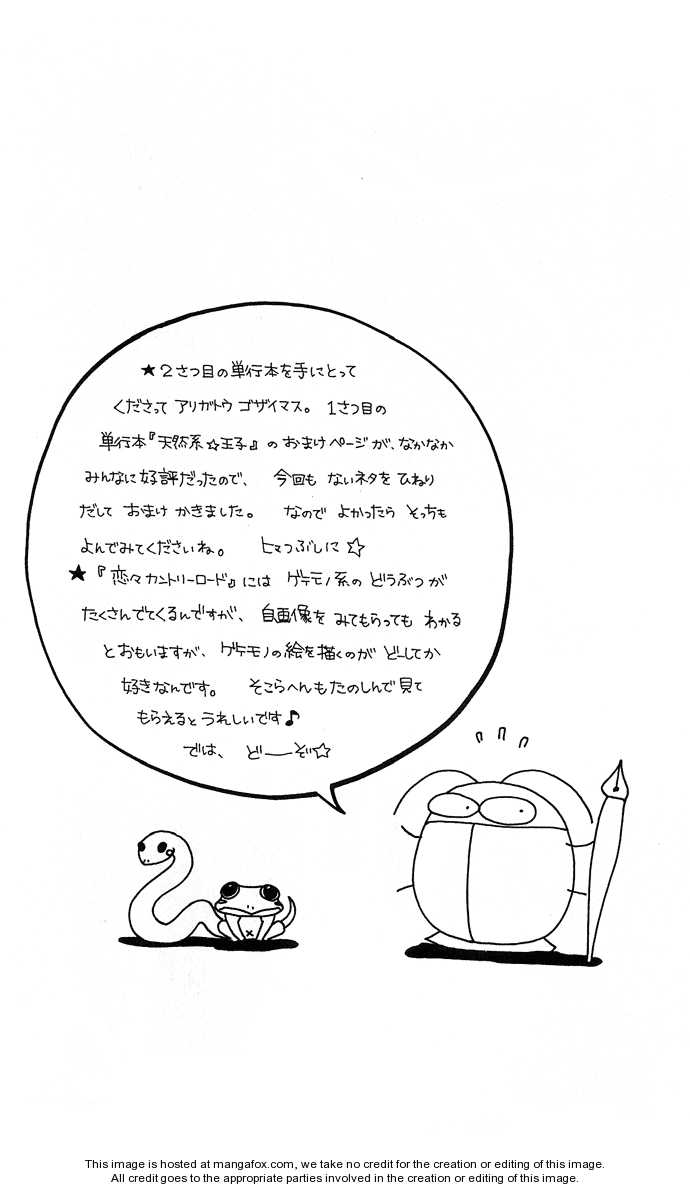 ★2さつ目の単行本を手にとって
くださって アリガトウ ゴザイマス。 1さつ目の
単行本『天然系☆王子』の おまけページが、なかなか
みんなに好評だったので、 今回も ないネタを ひねり
だして おまけ かきました。 なので よかったら そっちも
よんでみてくださいね。 ヒマつぶしに☆
★『恋々カントリーロード』には ゲテモノ系の どうぶつが
たくさんでてくるんですが、 自画像を みてもらっても わかる
とおもいますが、ゲテモノの絵を描くのが どーしてか
好きなんです。 そこらへんもたのしんで見て
もらえると うれしいです♪
では、 ど――ぞ☆
This image is hosted at mangafox.com, we take no credit for the creation or editing of this image.
All credit goes to the appropriate parties involved in the creation or editing of this image.